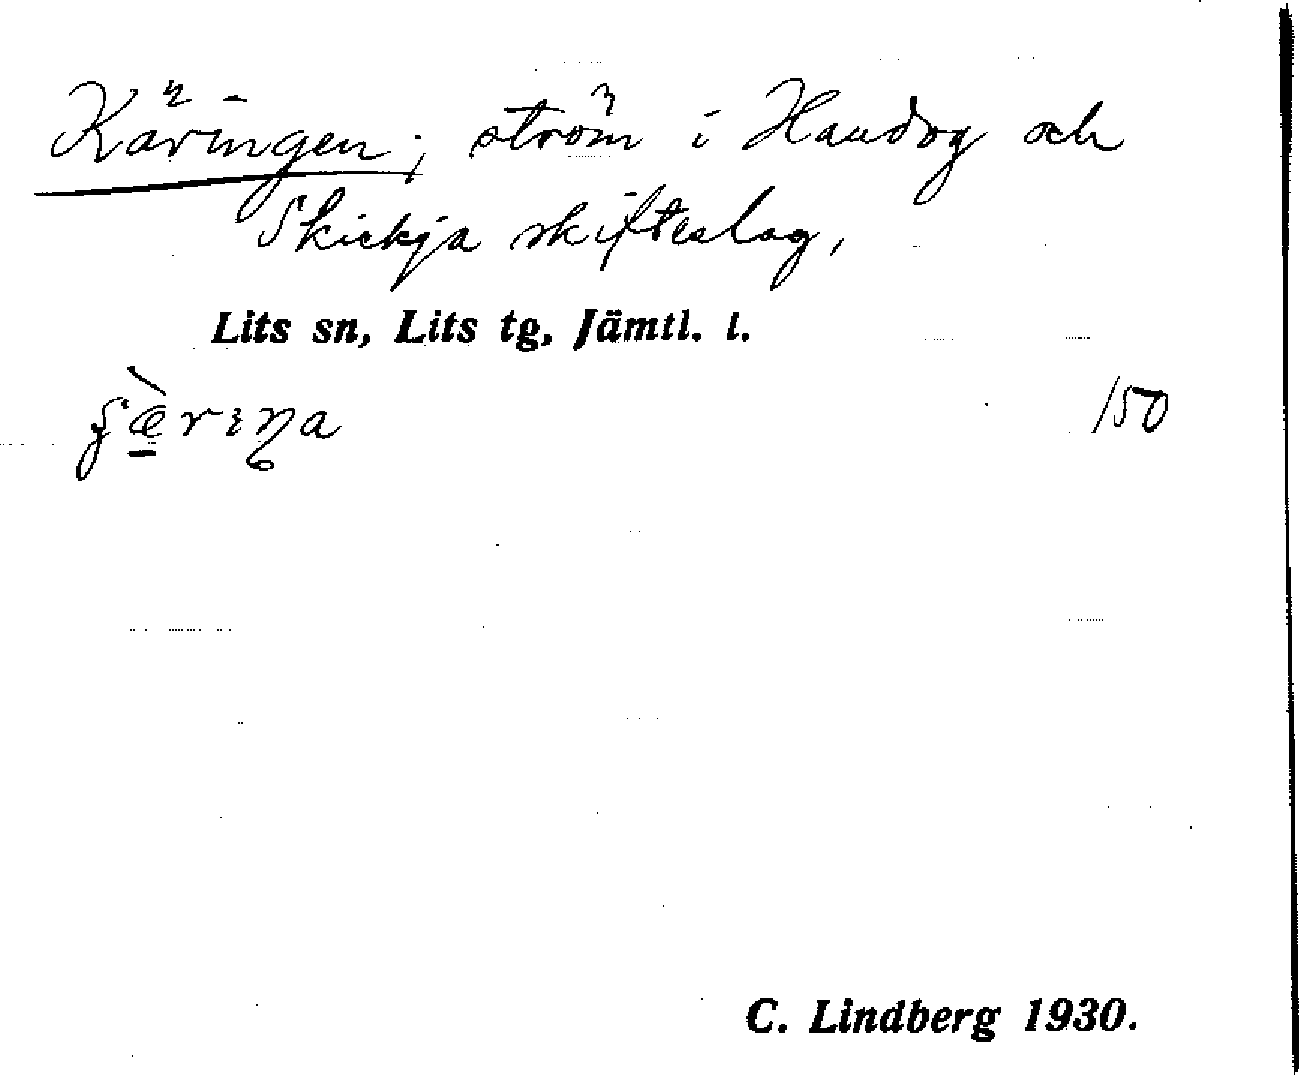 Käringen; ström i Handog och
Skickja skifteslag,
Lits sn, Lits tg, Jämtl. l.
150
C. Lindberg 1930.